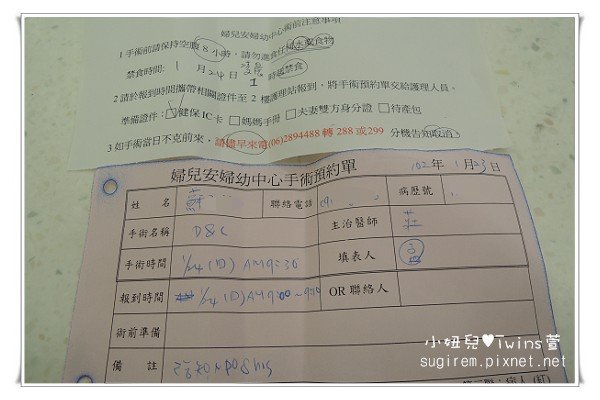 婦兒安婦幼中心術前注意事項
1 手術前請保持空腹 8 小時，請勿進食任何水或食物
禁食時間: 1 月 24 日 時起禁食
2 請於報到時間攜帶相關證件至 2 樓護理站報到，將手術預約單交給護理人員。
準備證件: □健保 IC 卡 □媽媽手冊 □夫妻雙方身分證 □待產包
3 如手術當日不克前來，請儘早來電(06)2894488 轉 288 或299 分機告知取消
婦兒安婦幼中心手術預約單 102年 1月23日
姓 名 蘇 聯絡電話 病歷號
手術名稱 D&C 主治醫師 莊
手術時間 1/24 (四) AM9:30 填表人
報到時間 1/24 (四) AM9:00 OR 聯絡人
術前準備
備 註 NPO 8 hrs
小妞兒♥Twins萱
sugirem.pixnet.net